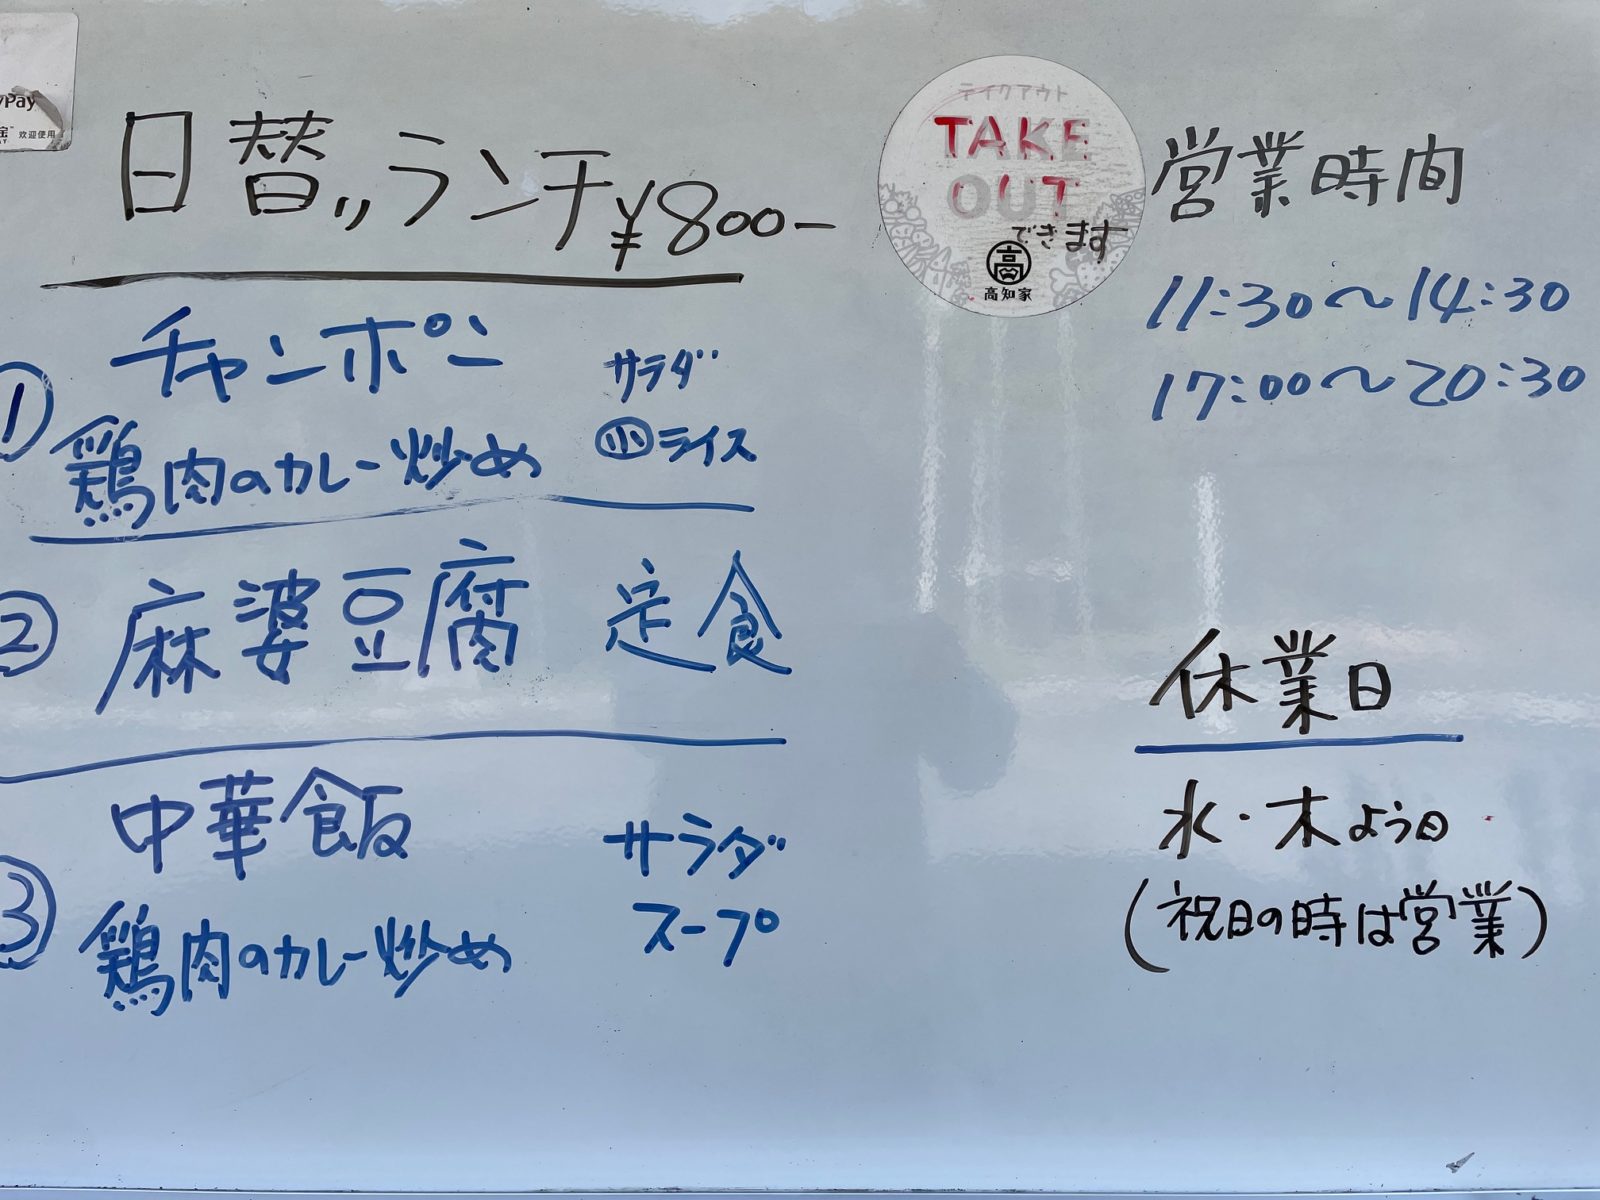 Pay
欢迎使用
日替りランチ ¥800-
① チャンポン サラダ
鶏肉のカレー炒め ㊥ライス
② 麻婆豆腐 定食
③ 中華飯 サラダ
鶏肉のカレー炒め スープ
テイクアウト
TAKE
OUT
できます
高知家
営業時間
11:30〜14:30
17:00〜20:30
休業日
水・木よう日
(祝日の時は営業)